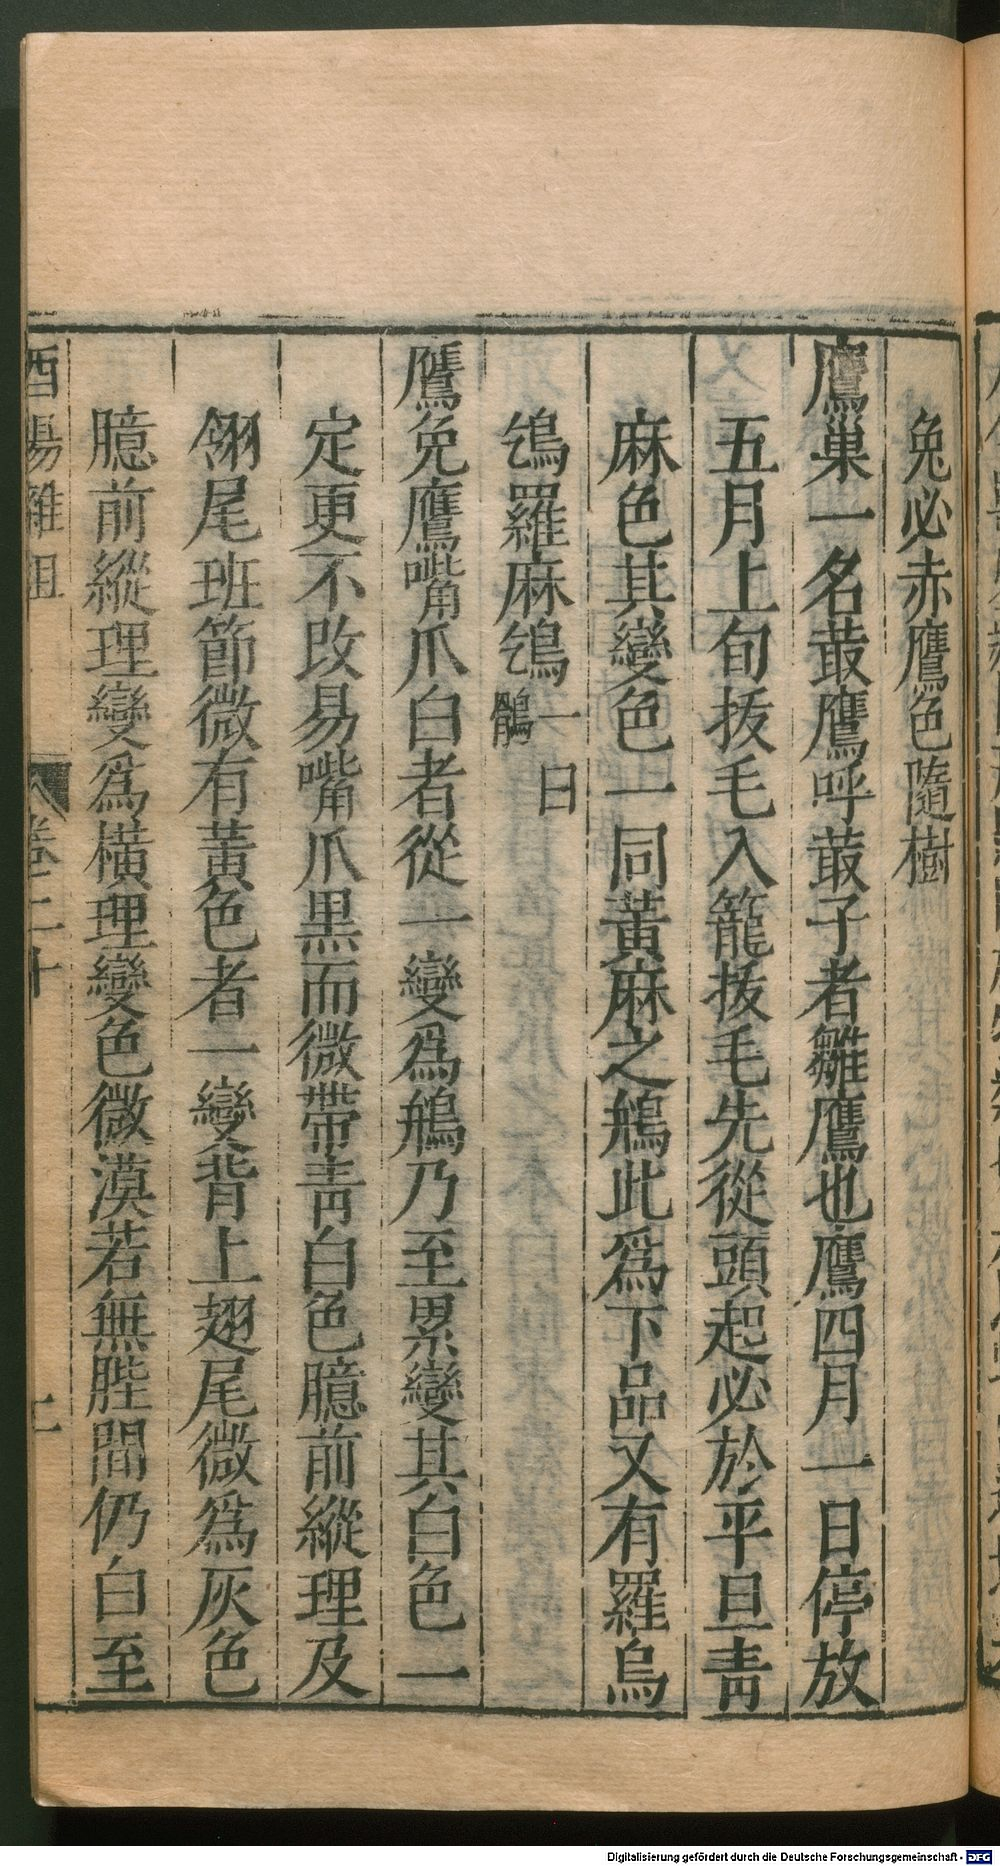 兔必赤鷹色隨樹
鷹巢一名菆鷹呼菆子者雛鷹也鷹四月一日停放
五月上旬拔毛入籠拔毛先從頭起必於平旦青
麻色其變色一同黃麻之鴘此為下品又有羅烏
鴭羅麻鴭一曰鶻
鷹兔鷹嘴爪白者從一變為鴘乃至累變其白色一
定更不改易嘴爪黑而微帶青白色臆前縱理及
翎尾班節微有黃色者一變背上翅尾微為灰色
臆前縱理變為橫理變色微漠若無䏶間仍白至
酉陽雜俎
卷二十
Digitalisierung gefördert durch die Deutsche Forschungsgemeinschaft - DFG